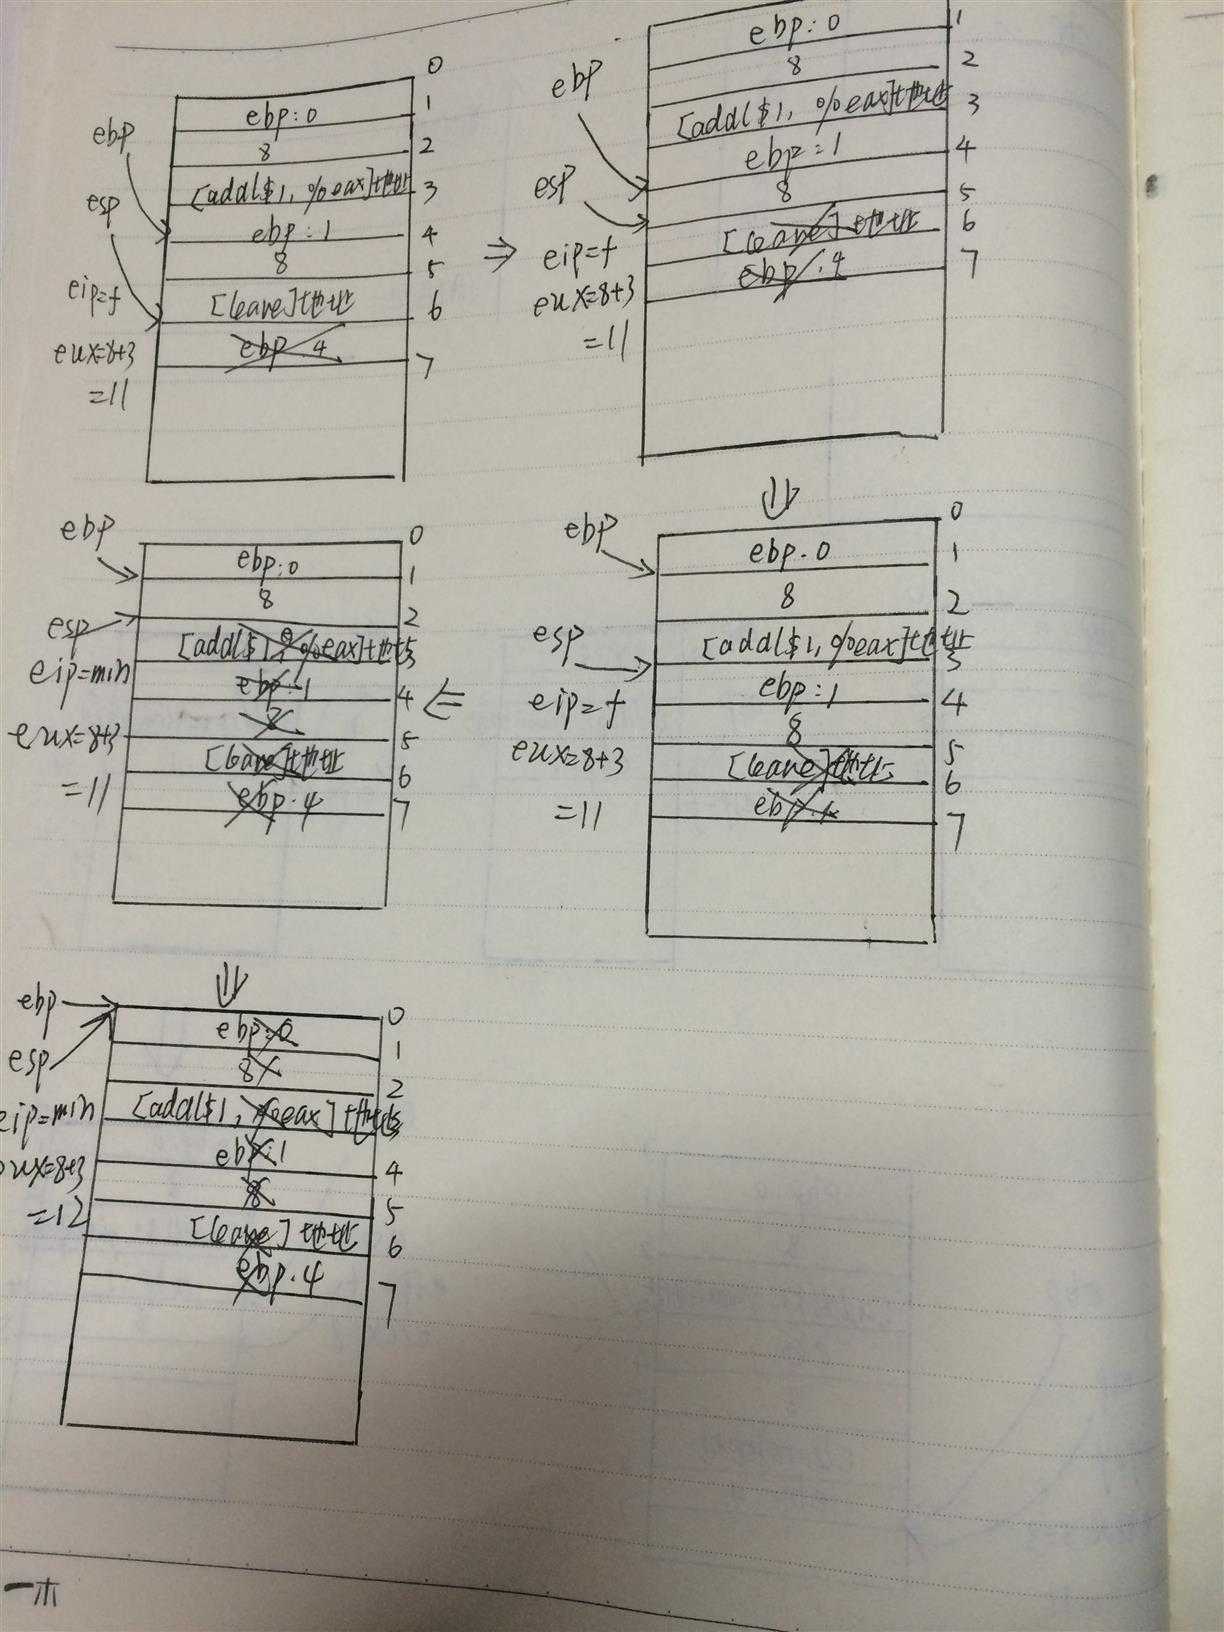 0
ebp:0
1
8
2
[addl$1, %eax]地址
3
ebp:1
4
8
5
[leave]地址
6
ebp 4
7
ebp
esp
eip=f
eux=8+3
=11
⇒
ebp:0
1
8
2
[addl$1, %eax]地址
3
ebp=1
4
8
5
[leave]地址
6
ebp.4
7
ebp
esp
eip=f
eux=8+3
=11
⇓
0
ebp.0
1
8
2
[addl$1,%eax]地址
3
ebp:1
4
8
5
[leave]地址
6
7
ebp
esp
eip=f
eux=8+3
=11
⇐
0
ebp:0
1
8
2
[addl$1, %eax]地址
3
ebp:1
4
8
5
[leave]地址
6
ebp.4
7
ebp
esp
eip=min
eux=8+3
=11
⇓
0
ebp:0
1
8
2
[addl$1, %eax]地址
3
ebp:1
4
8
5
[leave]地址
6
ebp.4
7
ebp
esp
eip=min
eux=8+3
=12
一木